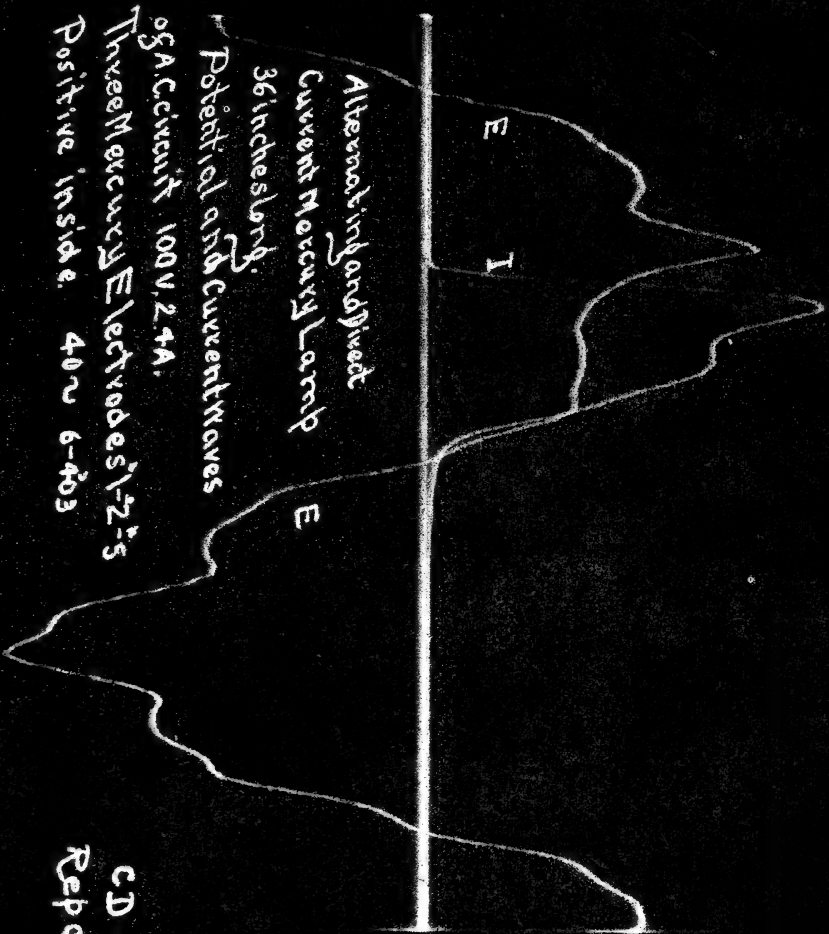 E
I
E
Alternating and Direct
Current Mercury Lamp
36 inches long.
Potential and Current Waves
of A.C. circuit 100 V. 2.4 A.
Three Mercury Electrodes
Positive inside. 40~ 6-4-03
CD
Repo